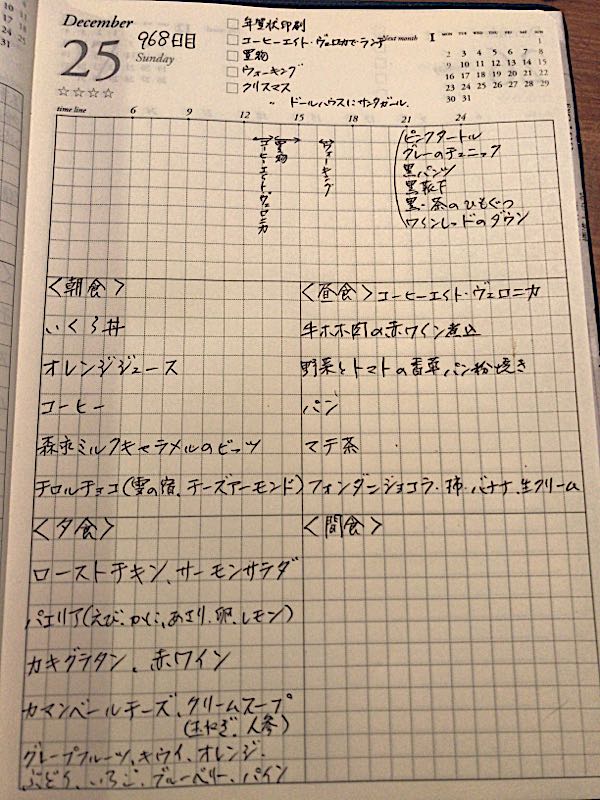 December
25
968日目
Sunday
☆☆☆☆
□ 年賀状印刷
□ コーヒーエイト・ヴェロニカでランチ
□ 買物
□ ウォーキング
□ クリスマス
〃 ドールハウスにサンタガール.
next month 1
MON TUE WED THU FRI SAT SUN
1
2 3 4 5 6 7 8
9 10 11 12 13 14 15
16 17 18 19 20 21 22
23 24 25 26 27 28 29
30 31
time line 6 9 12 15 18 21 24
コーヒーエイト・ヴェロニカ
買物
ウォーキング
ピンクタートル
グレーのチュニック
黒パンツ
黒靴下
黒・茶のひもぐつ
ワインレッドのダウン
<朝食>
いくら丼
オレンジジュース
コーヒー
森永ミルクキャラメルのビッツ
チロルチョコ(雪の宿、チーズアーモンド)
<昼食> コーヒーエイト・ヴェロニカ
牛ホホ肉の赤ワイン煮込
野菜とトマトの香草パン粉焼き
パン
マテ茶
フォンダンショコラ・柿・バナナ、生クリーム
<夕食>
ローストチキン、サーモンサラダ
パエリア(えび、かに、あさり、卵、レモン)
カキグラタン、赤ワイン
カマンベールチーズ、クリームスープ
(玉ねぎ、人参)
グレープフルーツ、キウイ、オレンジ、
ぶどう、いちご、ブルーベリー、パイン
<間食>